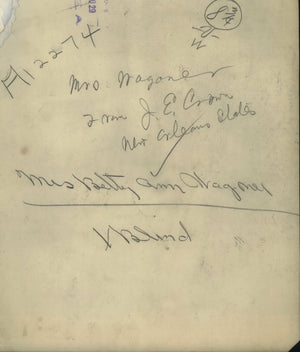 A12274
Mrs Wagoner
2 rm J. E. Crown
New Orleans States
Mrs Betty Ann Wagoner
1 Blind